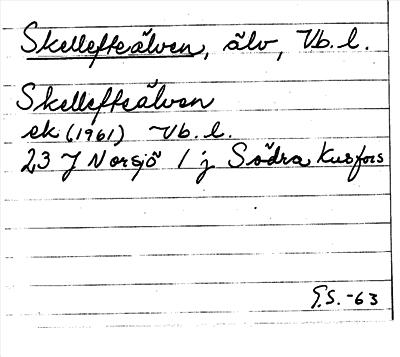 Skellefteälven, älv, Vb. l.
Skellefteälven
ek (1961) Vb. l.
23 J Norsjö 1 j Södra Kusfors
G.S. -63